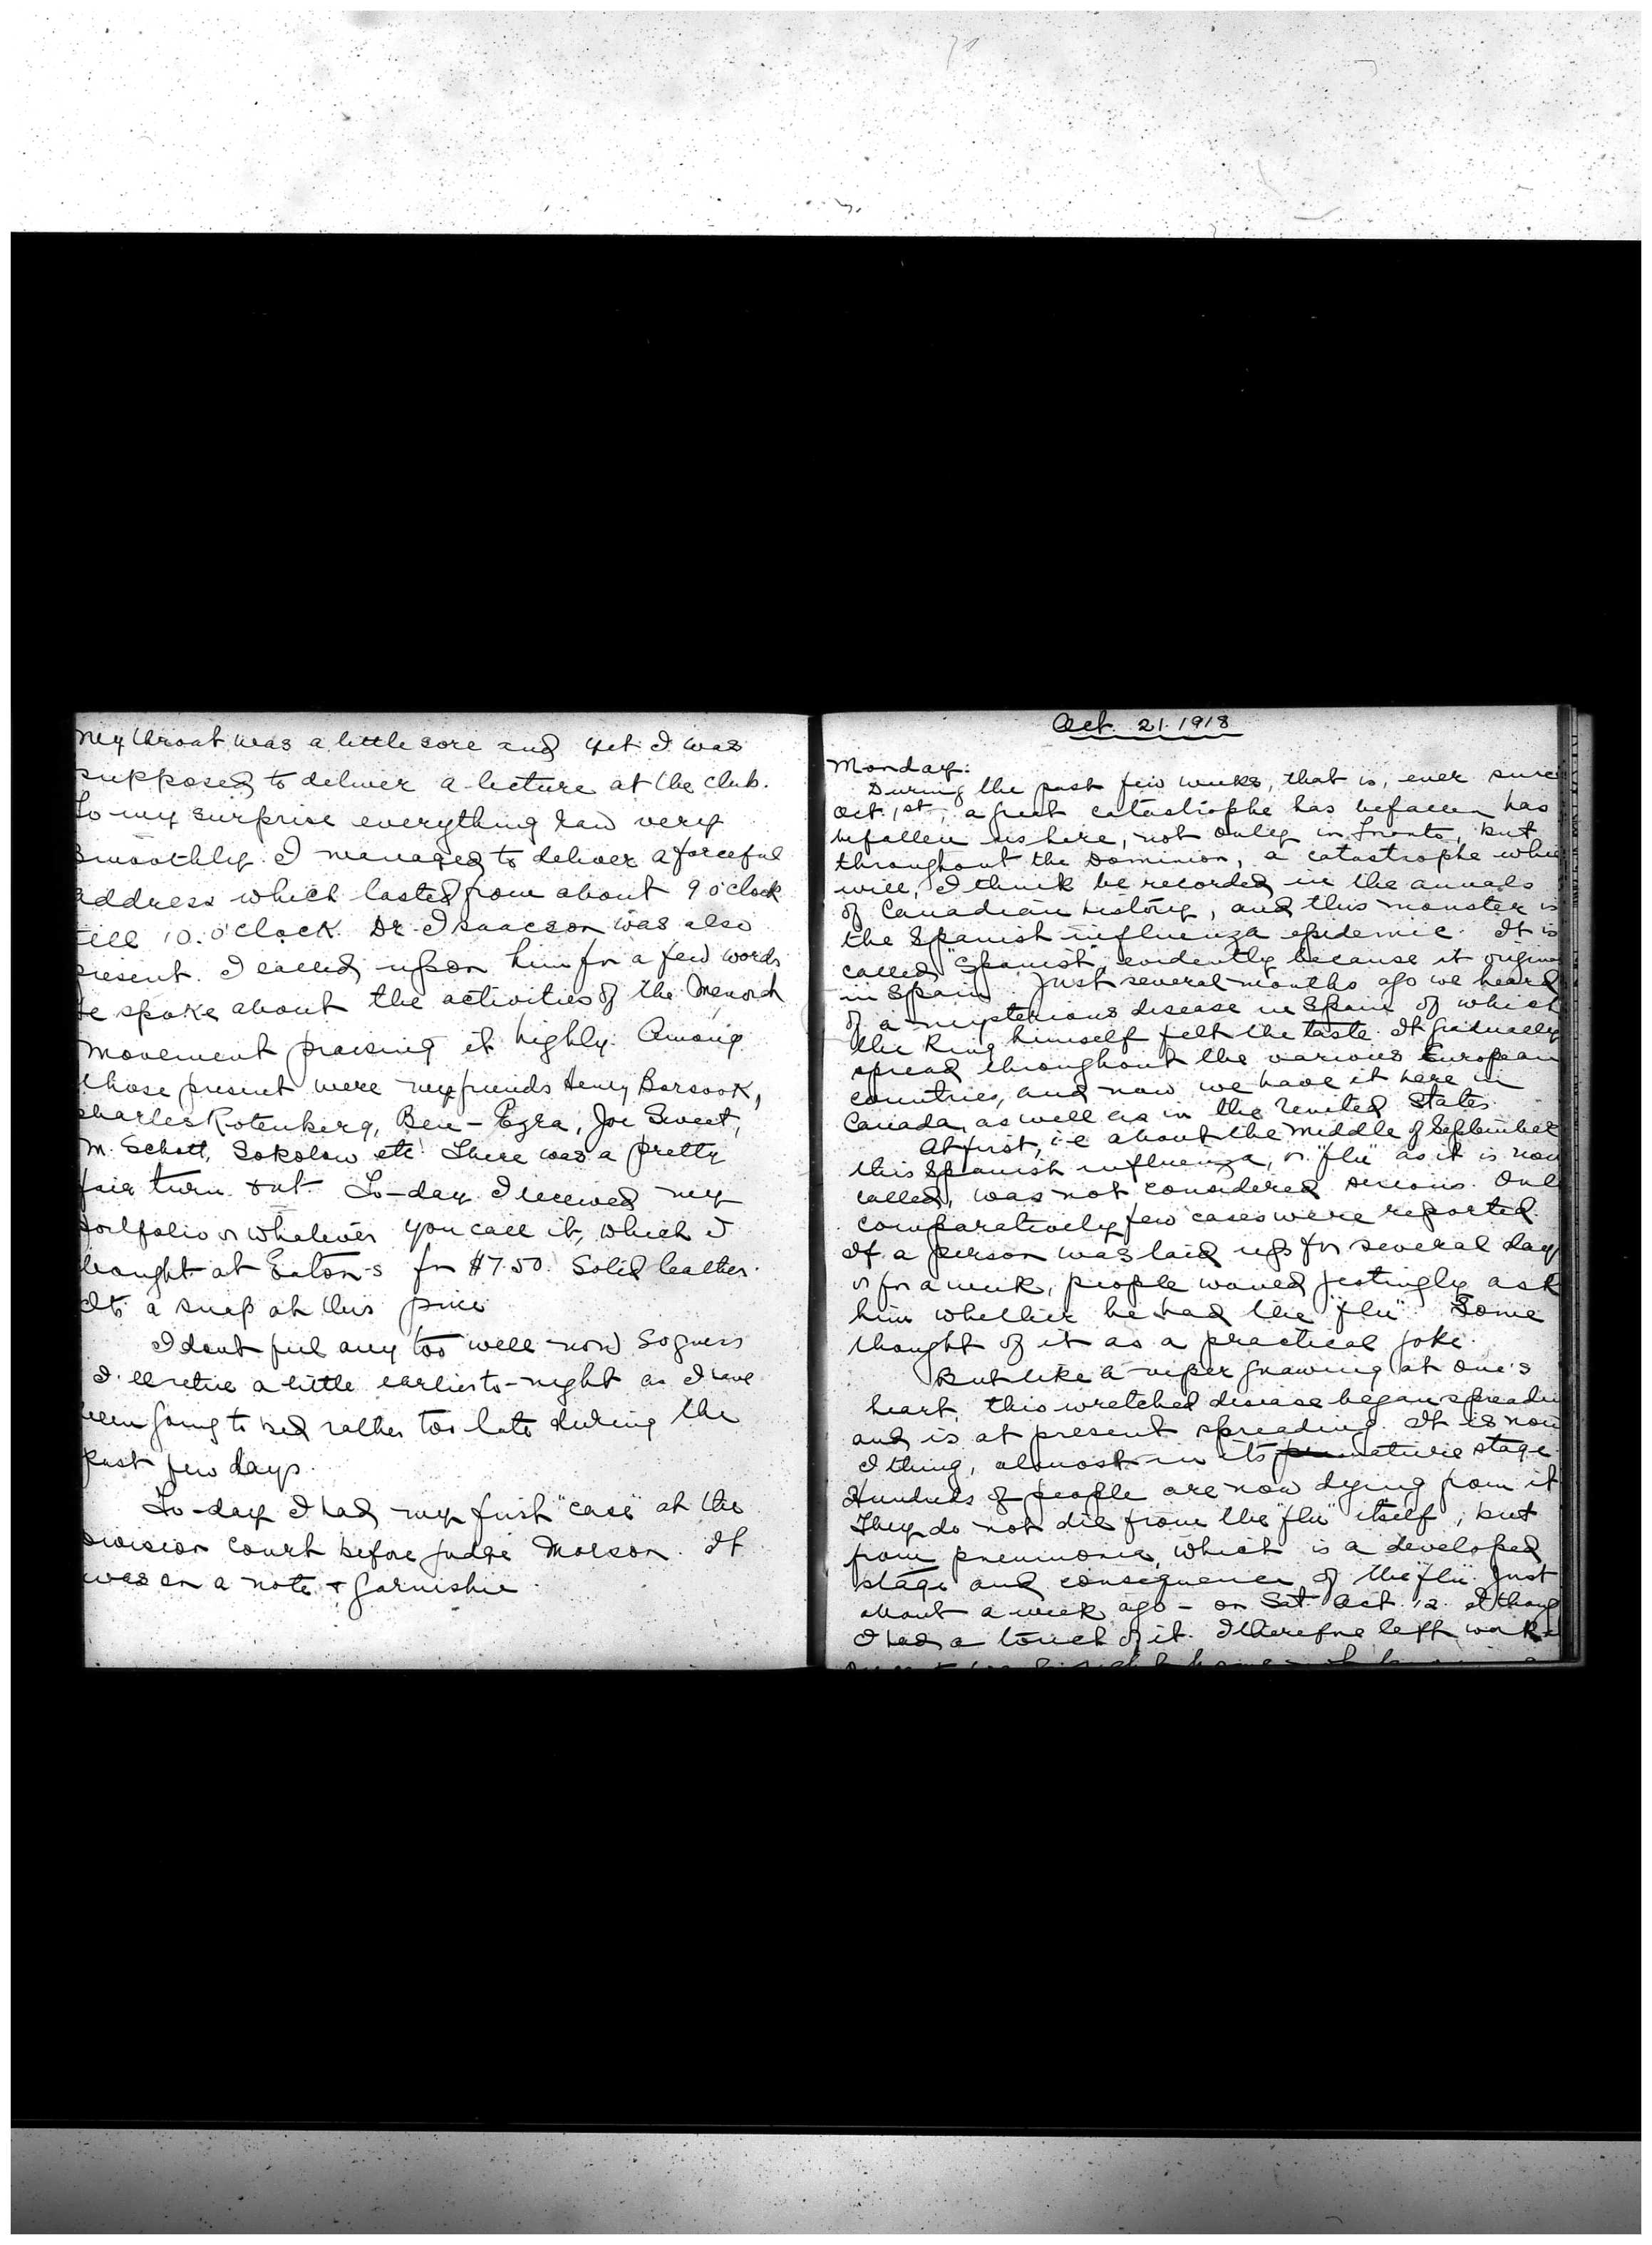 my throat was a little sore and yet I was
supposed to deliver a lecture at the club.
To my surprise everything ran very
smoothly. I managed to deliver a forceful
address which lasted from about 9 o'clock
till 10. o'clock. Dr. Isaacson was also
present. I called upon him for a few words
He spoke about the activities of the Menorah
movement praising it highly. Among
those present were my friends Henry Borsook,
Charles Rotenberg, Ben-Ezra, Joe Sweet,
M. Schott, Sokolow etc. There was a pretty
fair turn out. To-day I received my
portfolio or whatever you call it, which I
bought at Eaton's for $7.50. Solid leather.
Its a snap at this price
I dont feel any too well now so guess
I'll retire a little earlier to-night as I have
been going to bed rather too late during the
past few days.
To-day I had my first "case" at the
Division Court before Judge Morson. It
was on a note & garnishee.
Oct. 21. 1918
Monday:
During the past few weeks, that is, ever since
Oct. 1st, a great catastrophe has befallen has
befallen us here, not only in Toronto, but
throughout the Dominion, a catastrophe which
will, I think be recorded in the annals
of Canadian history, and this monster is
the Spanish influenza epidemic. It is
called "Spanish" evidently because it origin
in Spain. Just several months ago we heard
of a mysterious disease in Spain of which
the King himself felt the taste. It gradually
spread throughout the various European
countries, and now we have it here in
Canada, as well as in the United States.
At first, i.e. about the middle of September
this Spanish influenza, or "flu" as it is now
called, was not considered serious. Onl
comparatively few cases were reported.
If a person was laid up for several day
or for a week, people would jestingly ask
him whether he had the "flu". Some
thought of it as a practical joke.
But like a viper gnawing at one's
heart, this wretched disease began spreadin
and is at present spreading. It is now
I thing, almost in its mature stage.
Hundreds of people are now dying from it
They do not die from the "flu" itself, but
from pneumonia, which is a developed
stage and consequence of the "flu". Just
about a week ago - on Sat. Oct. 12. I thoug
I had a touch of it. I therefore left work